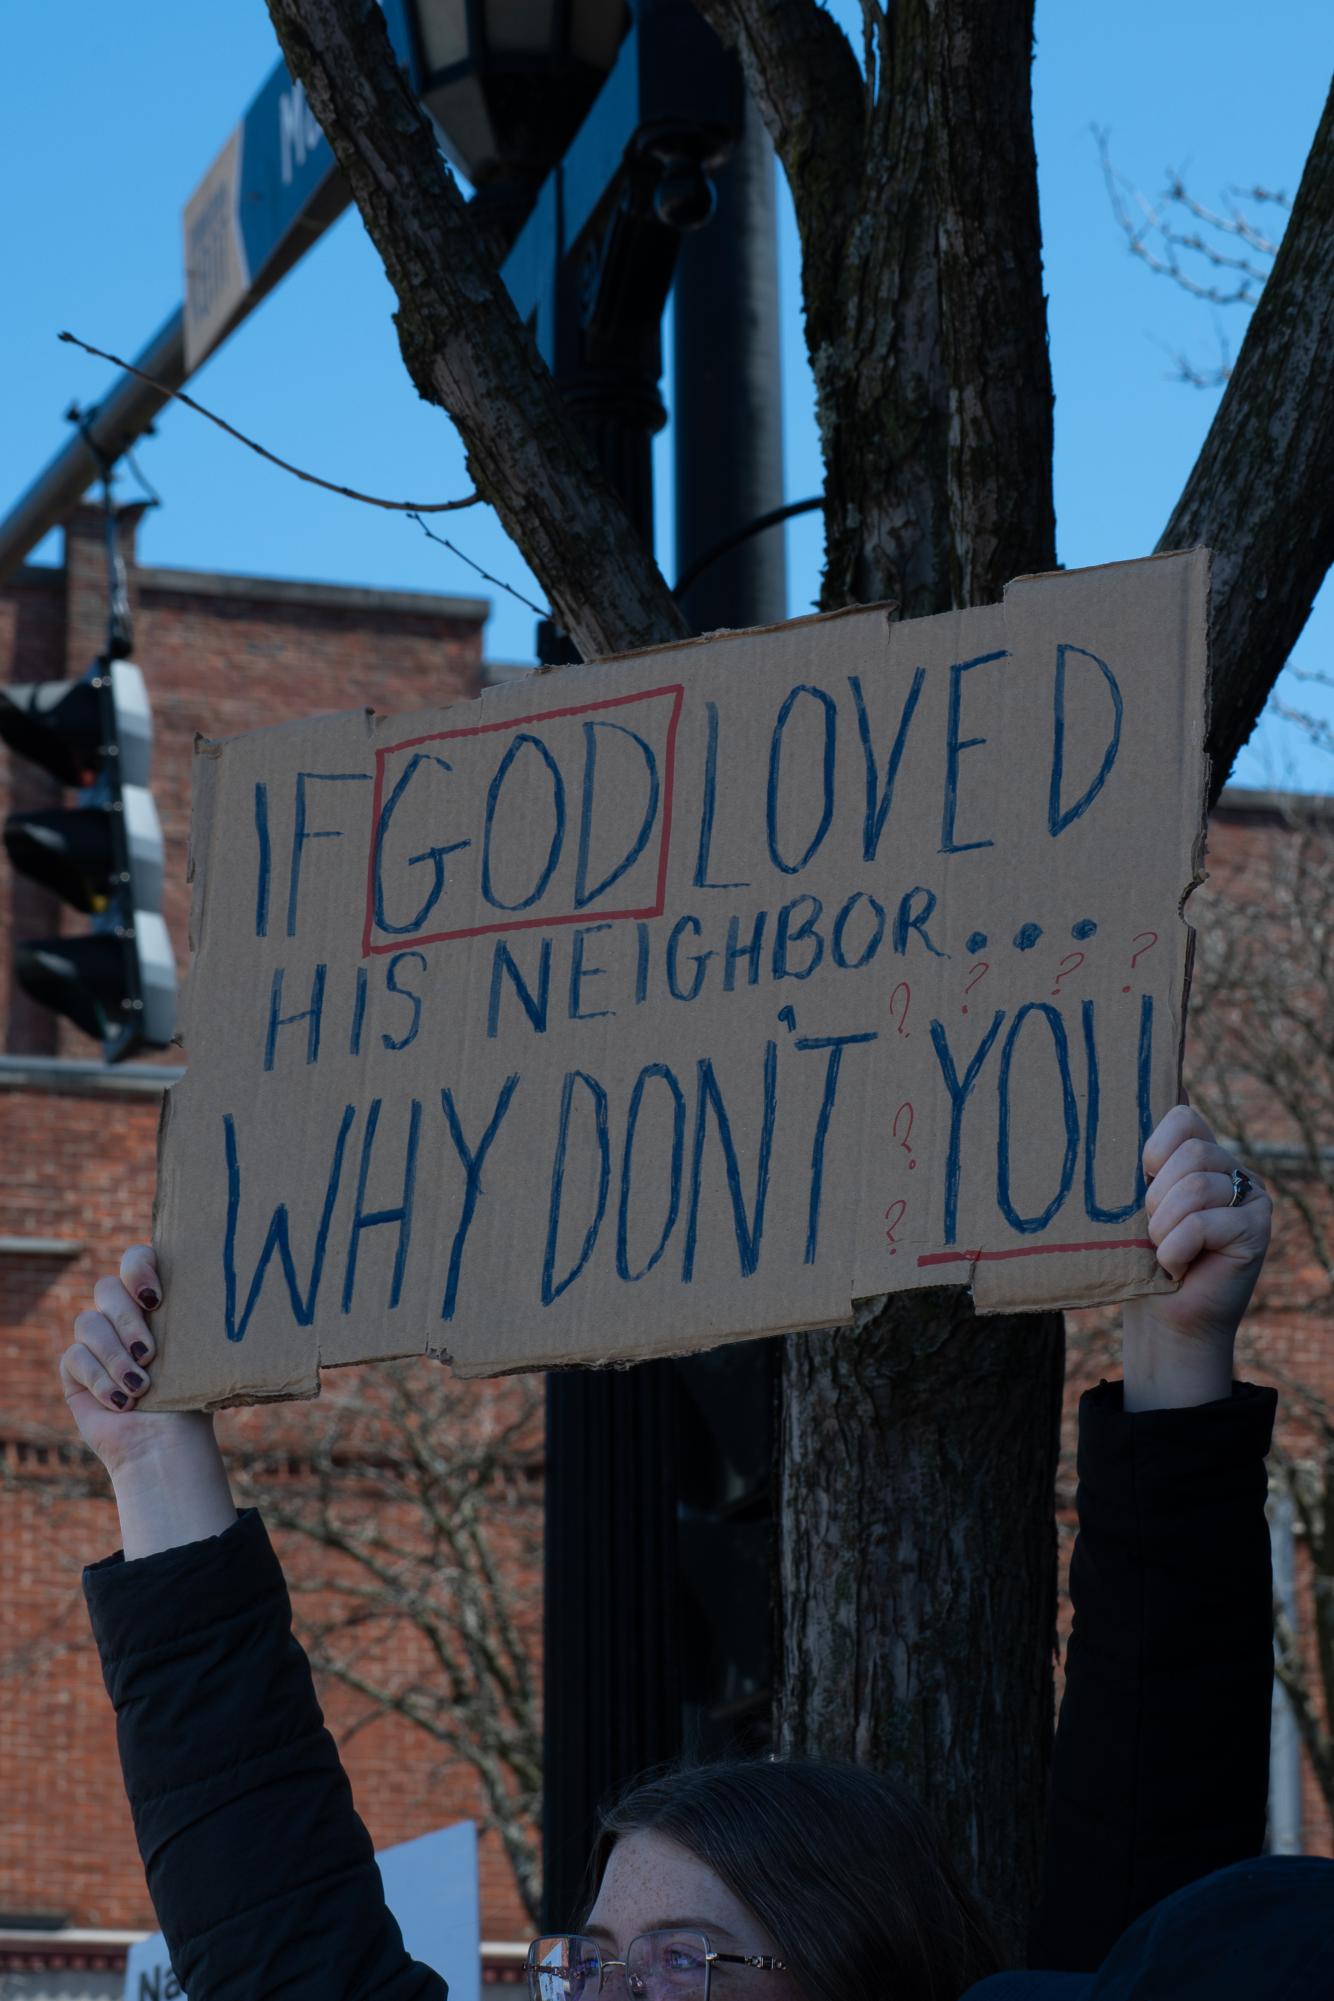 IF GOD LOVED
HIS NEIGHBOR...
? ? ? ?
WHY DON'T YOU
?
?